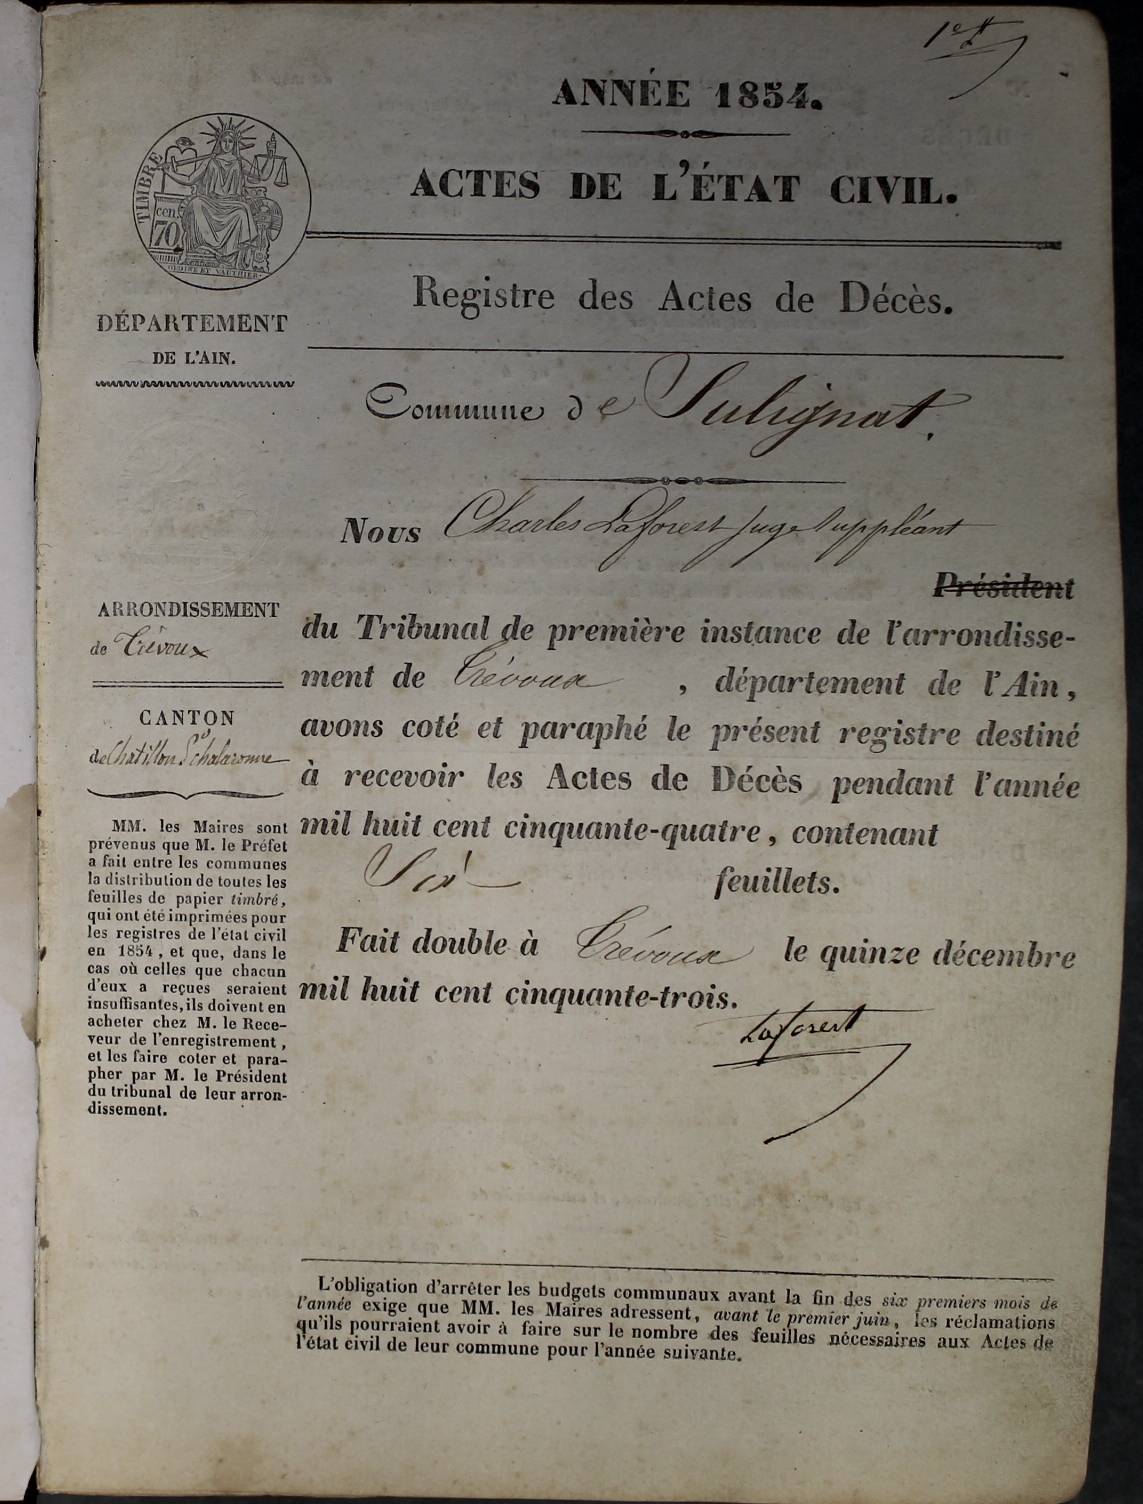 1er
ANNÉE 1854.
ACTES DE L'ÉTAT CIVIL.
TIMBRE
cen.
70
Registre des Actes de Décès.
DÉPARTEMENT
DE L'AIN.
Commune de Sulignat.
Nous Charles Laforest juge suppléant
Président
ARRONDISSEMENT
de Trévoux
du Tribunal de première instance de l'arrondisse-
ment de Trévoux, département de l'Ain,
CANTON
de Chatillon s Chalaronne
avons coté et paraphé le présent registre destiné
à recevoir les Actes de Décès pendant l'année
mil huit cent cinquante-quatre, contenant
Six feuillets.
Fait double à Trévoux le quinze décembre
mil huit cent cinquante-trois.
Laforest
MM. les Maires sont
prévenus que M. le Préfet
a fait entre les communes
la distribution de toutes les
feuilles de papier timbré,
qui ont été imprimées pour
les registres de l'état civil
en 1854, et que, dans le
cas où celles que chacun
d'eux a reçues seraient
insuffisantes, ils doivent en
acheter chez M. le Rece-
veur de l'enregistrement,
et les faire coter et para-
pher par M. le Président
du tribunal de leur arron-
dissement.
L'obligation d'arrêter les budgets communaux avant la fin des six premiers mois de
l'année exige que MM. les Maires adressent, avant le premier juin, les réclamations
qu'ils pourraient avoir à faire sur le nombre des feuilles nécessaires aux Actes de
l'état civil de leur commune pour l'année suivante.